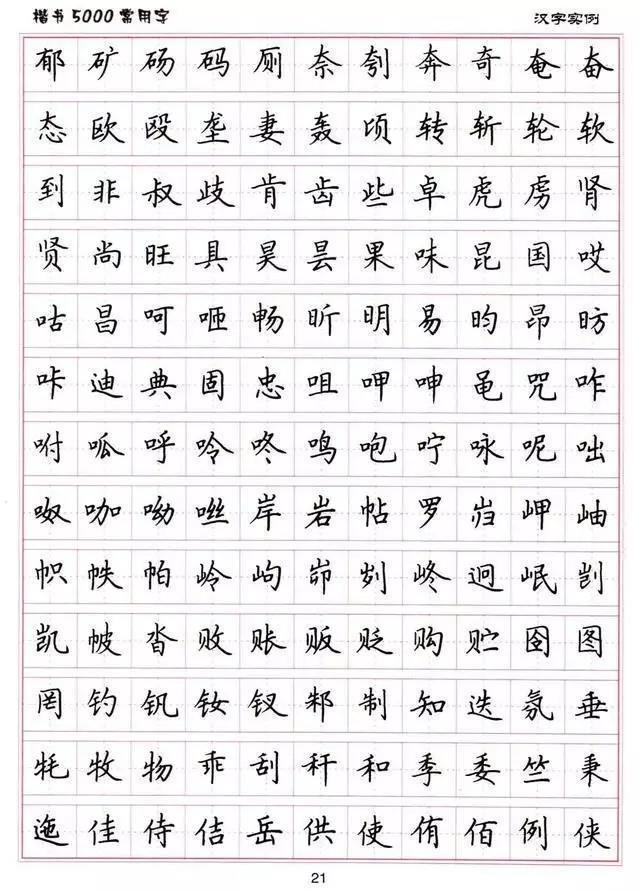 楷书5000常用字 汉字实例
郁矿砀码厕奈刳奔奇奄奋
态欧殴垄妻轰顷转斩轮软
到非叔歧肯齿些卓虎虏肾
贤尚旺具昊昙果味昆国哎
咕昌呵咂畅昕明易昀昂昉
咔迪典固忠咀呷呻黾咒咋
咐呱呼呤咚鸣咆咛咏呢咄
呶咖呦咝岸岩帖罗岿岬岫
帜帙帕岭岣峁刿峂迥岷剀
凯帔沓败账贩贬购贮囹图
罔钓钒钕钗邾制知迭氛垂
牦牧物乖刮秆和季委竺秉
迤佳侍佶岳供使侑佰例侠
21